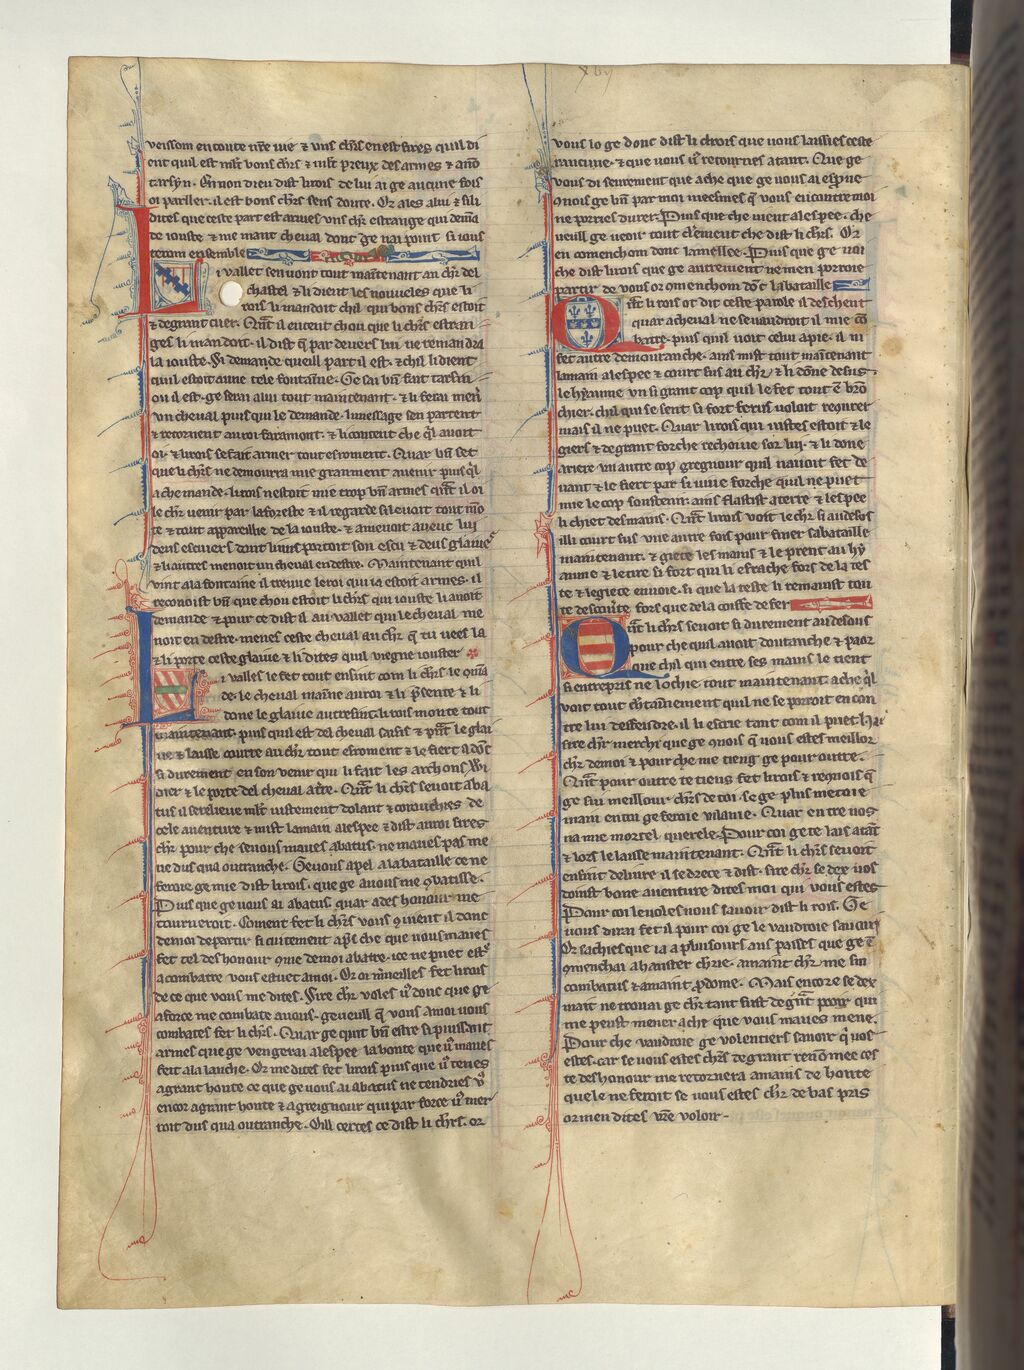 xvij
veissom encontre nr̃e vie & uns chr̃s en est sires qui di
ent quil est mlt bons chr̃s & mlt preux des armes & a non
tarsyn. En non dieu dist li rois de lui ai ge aucune fois
oi parller. il est bons chr̃s sens doute. Or ales a lui & si li
dites que ceste part est arives uns chr̃s estrange qui demā
te iouste & me mant cheval dont ge nai point si vous
ferom ensemble
Li vallet sen vont tout maintenant au chr̃ del
chastel & li dient les nouveles que li
rois li mandoit chil qui bons chr̃s estoit
& de grant cuer. Quāt il entent chou que li chr̃s estran
ges li mandoit. il dist q̃ par devers lui ne remandra
la iouste. Si demande queill part il est. & chil li dient
quil estoit a une tele fontainne. Ge sai bn̄ fait tarsin
ou il est. ge serai a lui tout maintenant. & li ferai men̄
un cheval puis qui le demande. li message sen partent
& retornent au roi faramont. & li content che q̃l avoit
oi. & li rois se fait armer tout esroment. Quar bn̄ set
que li chr̃s ne demourra mie granment a venir puis q̃l
a che mande. li rois nestoit mie trop bn̄ armes quāt il oi
le chr̃ venir par la foreste & il regarde si le voit tout mō
te & tout appareillie de la iouste. & amenoit aveuc lui
deus escuiers dont luns portoit son escu & deus glaives
& li autres menoit un cheval en destre. Maintenant quil
vint a la fontaine il treuve le roi qui ia estoit armes. il
reconoist bn̄ que chou estoit li chr̃s qui iouste li avoit
demande & pour ce dist il au vallet qui le cheval me
noit en destre. menes ceste cheval au chr̃ q̃ tu vees la
& li porte ceste glaive & li dites quil viegne iouster
Li valles le fet tout ensint com li chr̃s le cōmā
de. le cheval maine au roi & li p̃sente & li
done le glaive autresint. li rois monte tout
maintenant. puis quil est del cheval saisis & prāt le glai
ve & laisse courre au chr̃ tout esroment & le fiert adōc
si durement en son venir qui li fait les archons wi
dier & le porte del cheval a tr̃e. Quāt li chr̃s se voit aba
tus il se relieve mlt vistement dolant & corouchies de
cele aventure & mist la main a lespee & dist au roi sires
chr̃ pour che se vous maves abatus. ne maves pas me
ne dusqua outranche. Ge vous apel a la bataille ce ne
feroie ge mie dist li rois. que ge a vous me 9batisse.
Puis que ge vous ai abatus. quar a des honour me
tourneroit. Coment fet li chr̃s vous 9vient il donc
de moi departir si cuitement apr̃s che que vous maves
fet tel des honour 9me de moi abatre. ice ne puet estr̃
a combatre vous estuet a moi. Or oi m̃veilles fet li rois
de ce que vous me dites. Sire chr̃ voles v9 donc que ge
a force me combate a vous. ge veuill q̃ vous a moi vous
combates fet li chr̃s. Quar ge quit bn̄ estre si puissant
armes que ge vengerai a lespee la honte que v9 maves
feit a la lanche. Or me dites fet li rois puis que v9 tenes
a grant honte ce que ge vous ai abatus ne tendries v9
encor a grant honte & a greignour qui par force v9 mer
roit dusqua outranche. Oill certes ce dist li chr̃s. or
vous lo ge donc dist li chrois que vous laissies ceste
rancune. & que vous v9 retournes atant. Que ge
vous di seurement que a che que ge vous ai esprove
9nois ge bn̄ par moi meesmes q̃ vous encontre moi
ne porries durer. Puis que che vient a lespee. che
veuill ge veoir tout c̃tement che dist li chr̃s. Or
en comenchom donc la mellee. Puis que ge voi
che dist li rois que ge autrement ne men porroie
partir de vous or comenchom dōc la bataille
Quāt li rois ot dit ceste parole il descent
quar a cheval ne se vaudroit il mie cō
batre. puis quil voit celui a pie. il ni
fet autre demouranche. ains mist tout maintenant
la main a lespee & court sus au chr̃. & li dōne desus
le hyaume un si grant cop quil le fet tout ēbrō
chier. chil qui se sent si fort ferus voloit requerre
mais il ne puet. Quar li rois qui vistes estoit & le
giers & de grant forche rechovre sor lui. & li done
ariere un autre cop gregnour quil navoit fet de
vant & le fiert par si vive forche quil ne puet
mie le cop soustenir. ains flastist a terre & lespee
li chiet des mains. Quāt li rois voit le chr̃ si au desos
il li court sus une autre fois pour finer sa bataille
maintenant. & giete les mains & le prent au hy
aume & le tire si fort qui li esrache fors de la tes
te & le giete en voie. si que la teste li remaint tou
te descouverte fors que de la coiffe de fer
Quāt li chr̃s se voit si durement au desous
pour che quil avoit doutanche & paor
que chil qui entre ses mains le tient
si entrepris ne lochie tout maintenant a che q̃l
voit tout c̃tainement quil ne se porroit en con
tre lui desfendre. il li escrie tant com il puet. hai
sire chr̃ merchi que ge 9nois q̃ vous estes meillor
chr̃ de moi & pour che me tieng ge pour outre.
Quāt pour outre te tiens fet li rois & regnois q̃
ge sui meillour chr̃s de toi. se ge plus metoie
main en toi ge feroie vilanie. Quar entre nos
na mie mortel querele. Pour coi ge te lais atāt
& lors le laisse maintenant. Quāt li chr̃s se voit
ensint delivre il se drece & dist. sire chr̃ se dex vos
doinst bone aventure dites moi qui vous estes
Pour coi le voles vous savoir dist li rois. Ge
vous dirai fet il pour coi ge le vaudroie savoir
Or sachies que ia a pluisours ans passes que ge ē
9menchai a hanster chr̃ie. a maint chr̃ me sui
combatus & a maint p̃dome. Mais encore se dex
mait ne trouai ge chr̃ tant fust de gr̃nt pooir qui
me peust mener a che que vous maves mene.
Pour che vaudroie ge volentiers savoir q̃ vos
estes. car se vous estes chr̃s de grant renōmee ces
te deshonour me retornera a mains de honte
que le ne feroit se vous estes chr̃ de bas pris
or men dites vr̃e voloir